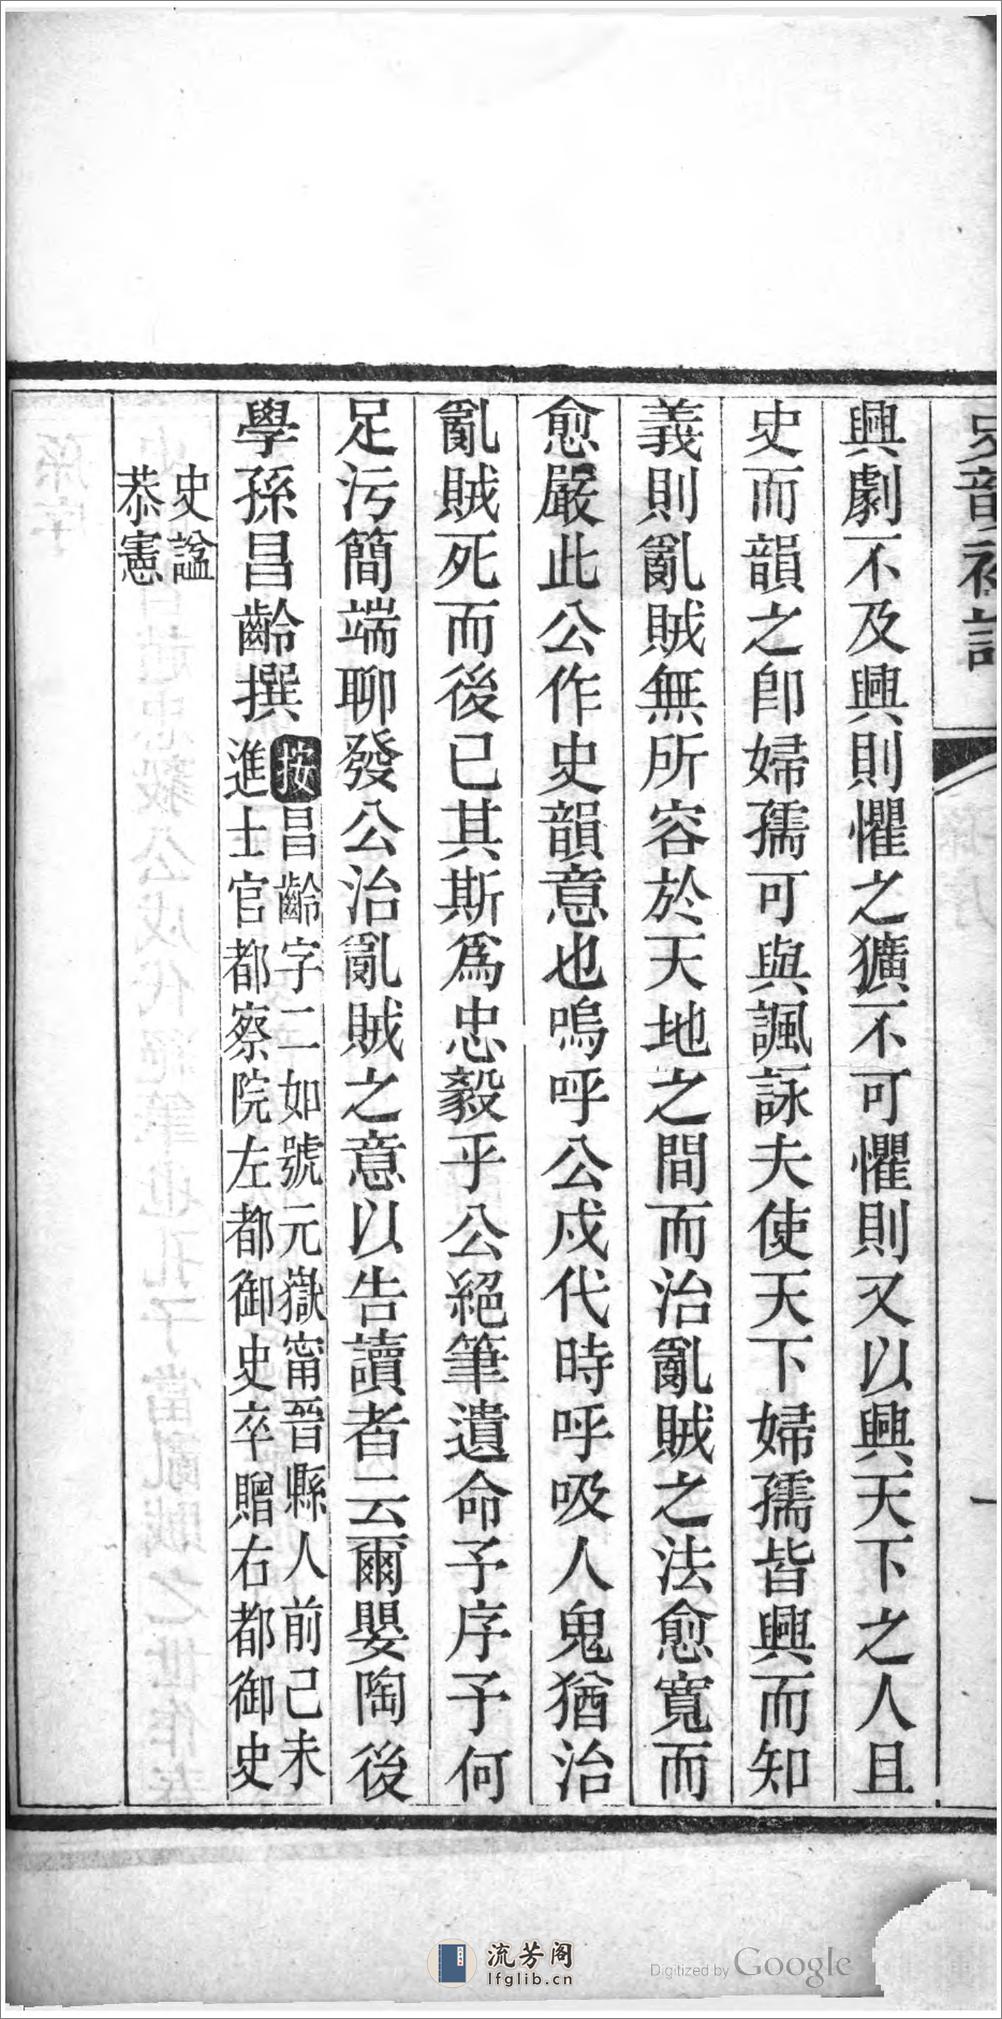 興劇不及興則懼之獷不可懼則又以興天下之人且
史而韻之卽婦孺可與諷詠夫使天下婦孺皆興而知
義則亂賊無所容於天地之間而治亂賊之法愈寬而
愈嚴此公作史韻意也嗚呼公戍代時呼吸人鬼猶治
亂賊死而後已其斯爲忠毅乎公絕筆遺命予序予何
足污簡端聊發公治亂賊之意以告讀者云爾嬰陶後
學孫昌齡撰
按昌齡字二如號元嶽甯晉縣人前己未
進士官都察院左都御史卒贈右都御史
史諡
恭憲
流芳阁
lfglib.cn
Digitized by Google